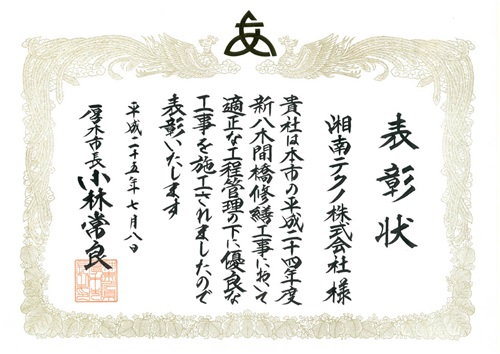 表彰状
湘南テクノ株式会社様
貴社は本市の平成二十四年度
新八木間橋修繕工事において
適正な工程管理の下に優良な
工事を施工されましたので
表彰いたします
平成二十五年七月八日
厚木市長 小林常良